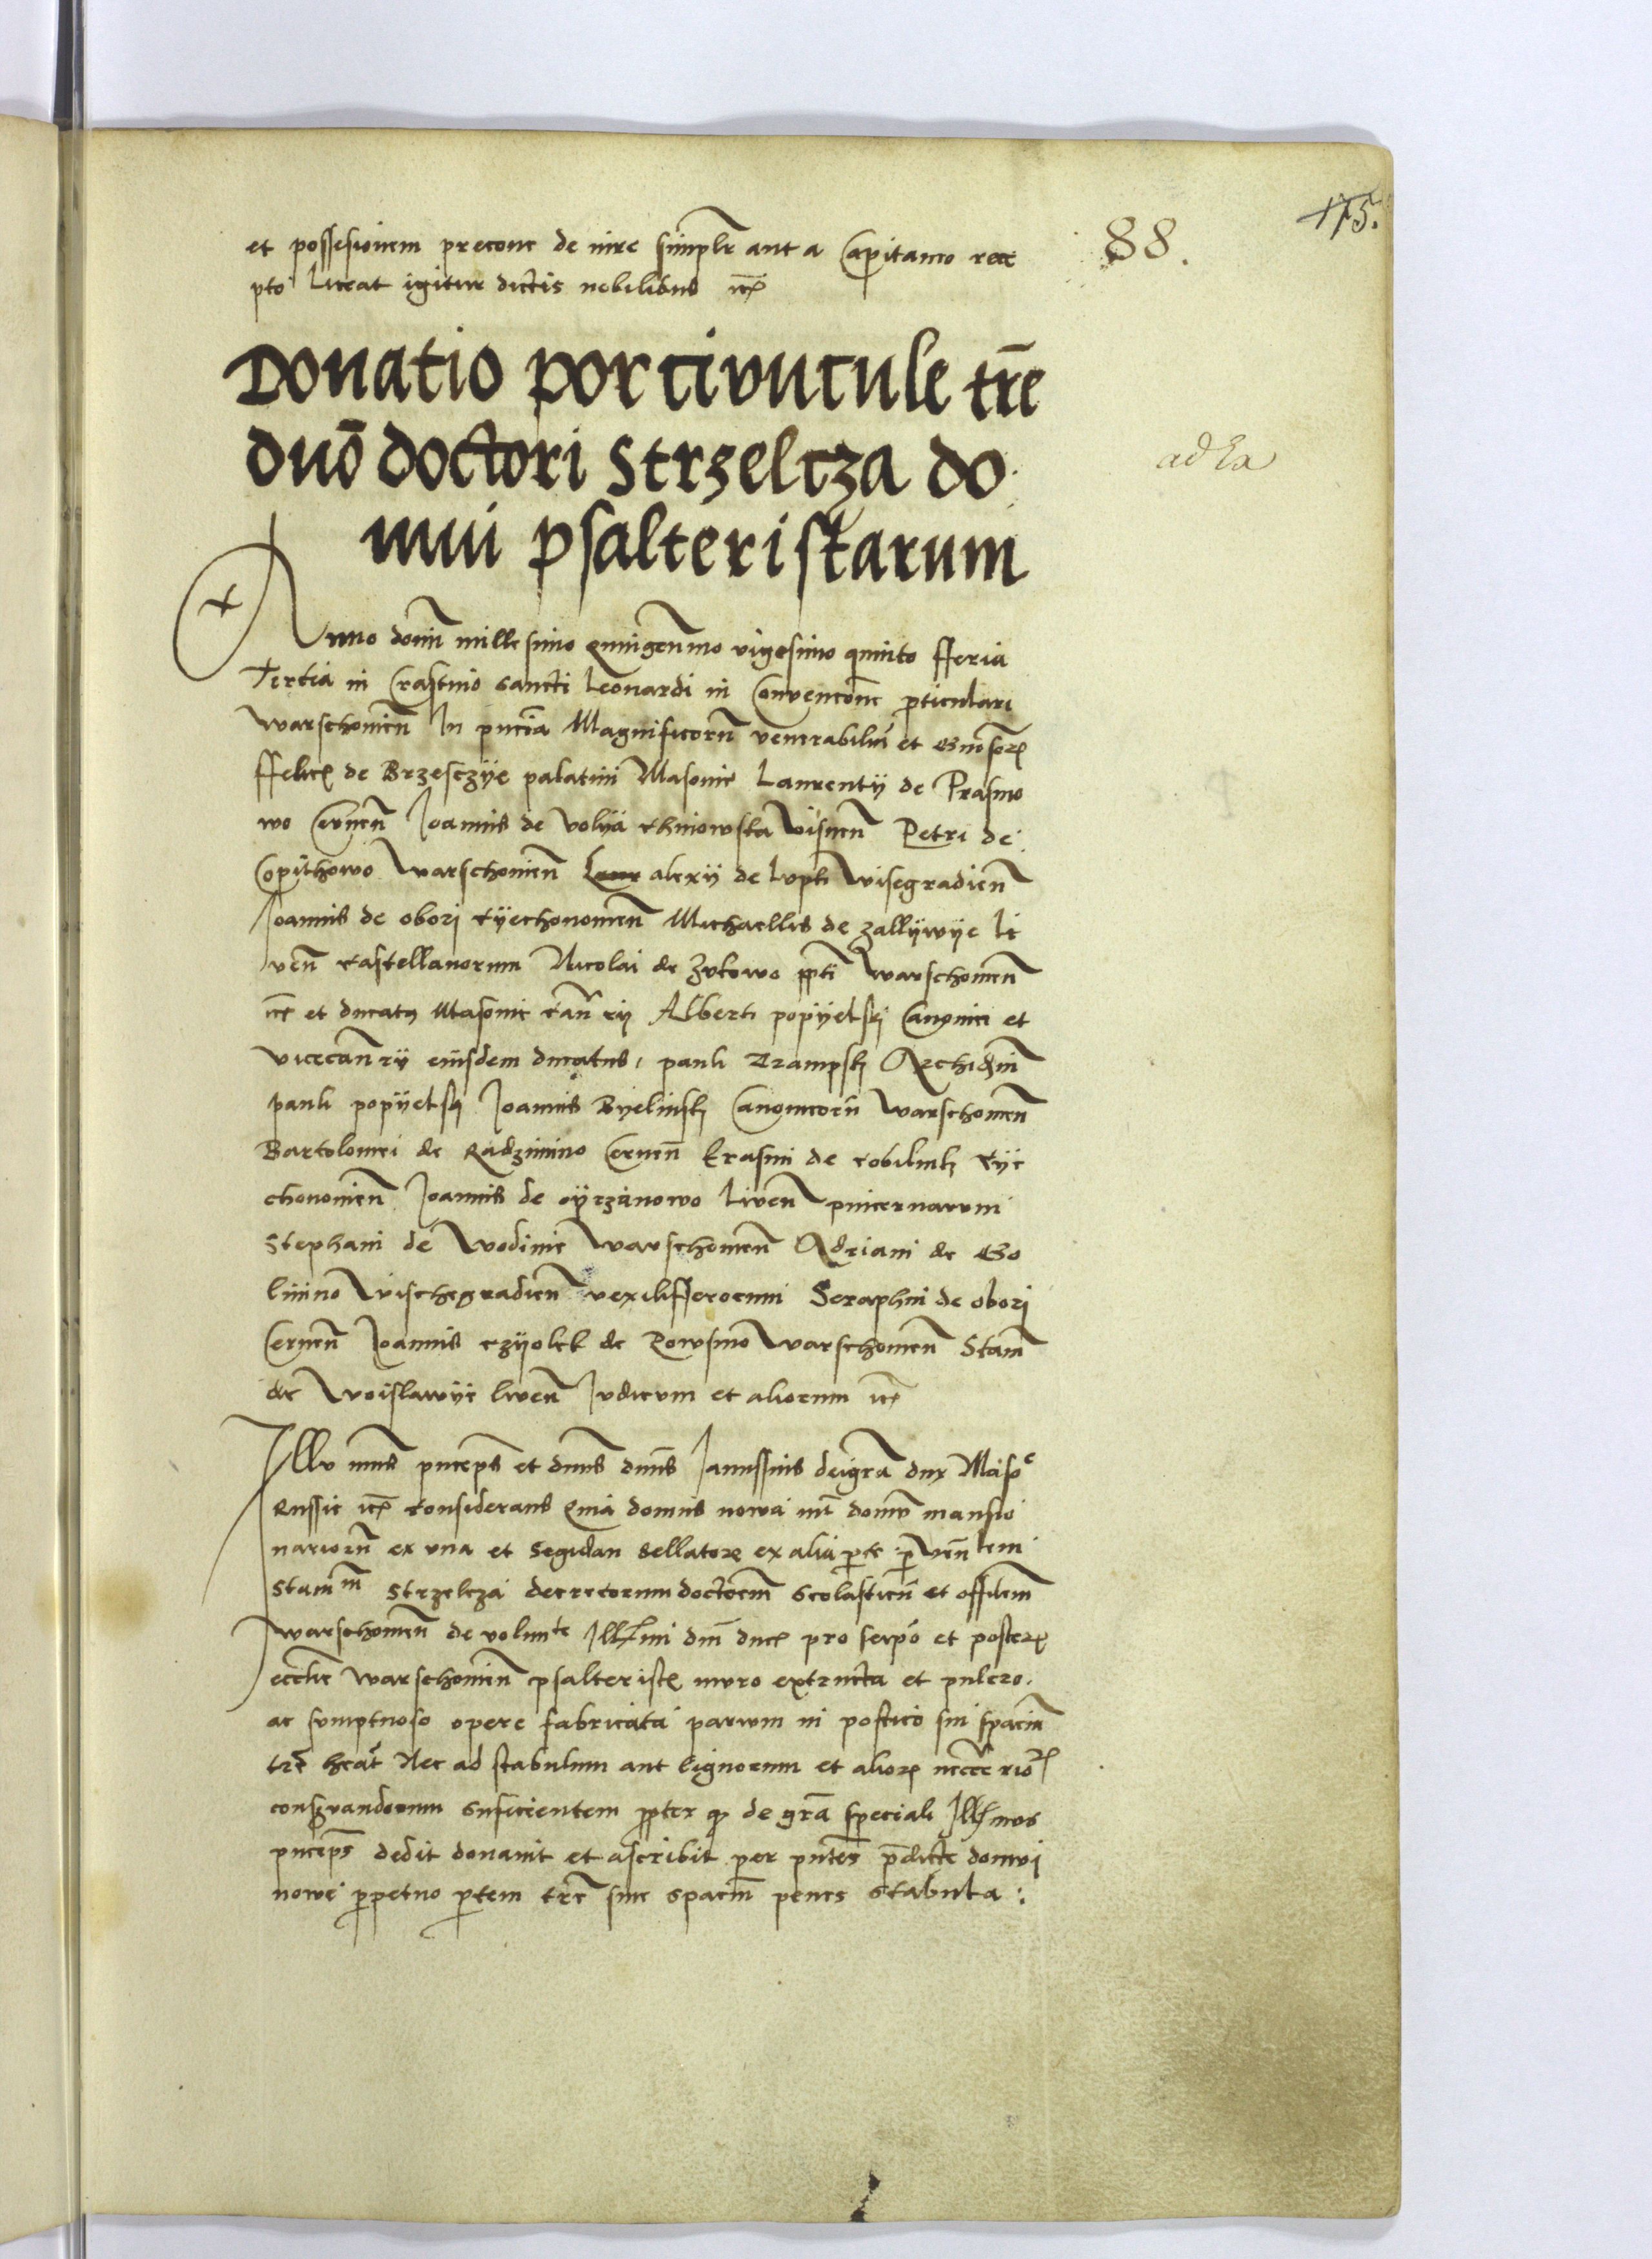 et possesionem precone de iure simplr aut a Capitaneo rece
pto liceat igitur dictis nobilibus etc
88.
175.
Donatio portiuncule tre
duo doctori Strzelcza do
mui psalteristarum
ad Ea
Anno domini millesimo quigenmo vigesimo quinto fferia
Tertia in Crastino sancti Leonardi in Convencone prticulari
Warschouien In pncia Magnificoru venerabiliu et Gnosor
ffelic de Brzesczÿe palatini Masouie Laurentÿ de Prasmo
wo Cernen Joannis de Volÿa Visnen Petri de
Copithowo Warschouien alexÿ de Wisegradien
Joannis de obori cÿechonouien Michaellis de zallÿwÿe li
ven castellanorum Nicolai de Zukowo ppti Warschouien
etc et ducatus Masouie canrÿ Alberti popÿelskj Canonici et
vicecanrÿ eiusdem ducatus, pauli Archidni
pauli popÿelskj Joannis Bÿelinskj Canonicoru Warschouien
Bartolomei de Radzimino Cernen Erasmi de cobilnikj cÿe
chonouien Joannis de oÿrzanowo liven pincernarum
Stephani de Wodinie Warschouien Adriani de Go
limino Vischegradien vexillifferorum Seraphin de obori
Cernen Joannis czÿolek de Warschouien Stani
de Woislawÿe liven Judicum et aliorum etc
Illu mus princeps et dnus dnus Janussius dei gra dux Maso e
Russie etc considerans quia domus nowa int domu mansio
narioru ex una et Segidan sellatore ex alia prte p Ven lem
Stanm Strzelcza decretorum doctorem scolasticu et offilem
Warschouien de volunte Illmi dni ducis pro seipo et poster
ecclie Warschouien psalteriste muro extructa et pulcro
ac sumptuoso opere fabricata parum in postico sui spaciu
tre heat Nec ad stabulum aut lignorum et alior neccerior
conservandorum suficientem ppter qd de gra speciali Illmus
pnceps dedit donauit et ascribit per pntes pdicte domui
nowe pperpetuo prtem tre siue spacium penes stabula: